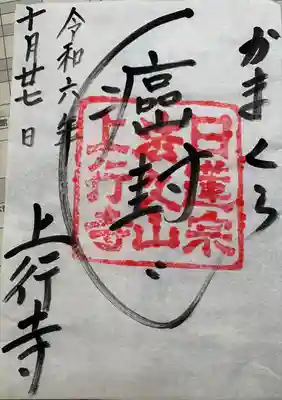 かまくら
癌封
日蓮宗
法久山
上行寺
令和六年
十月廿七日
上行寺